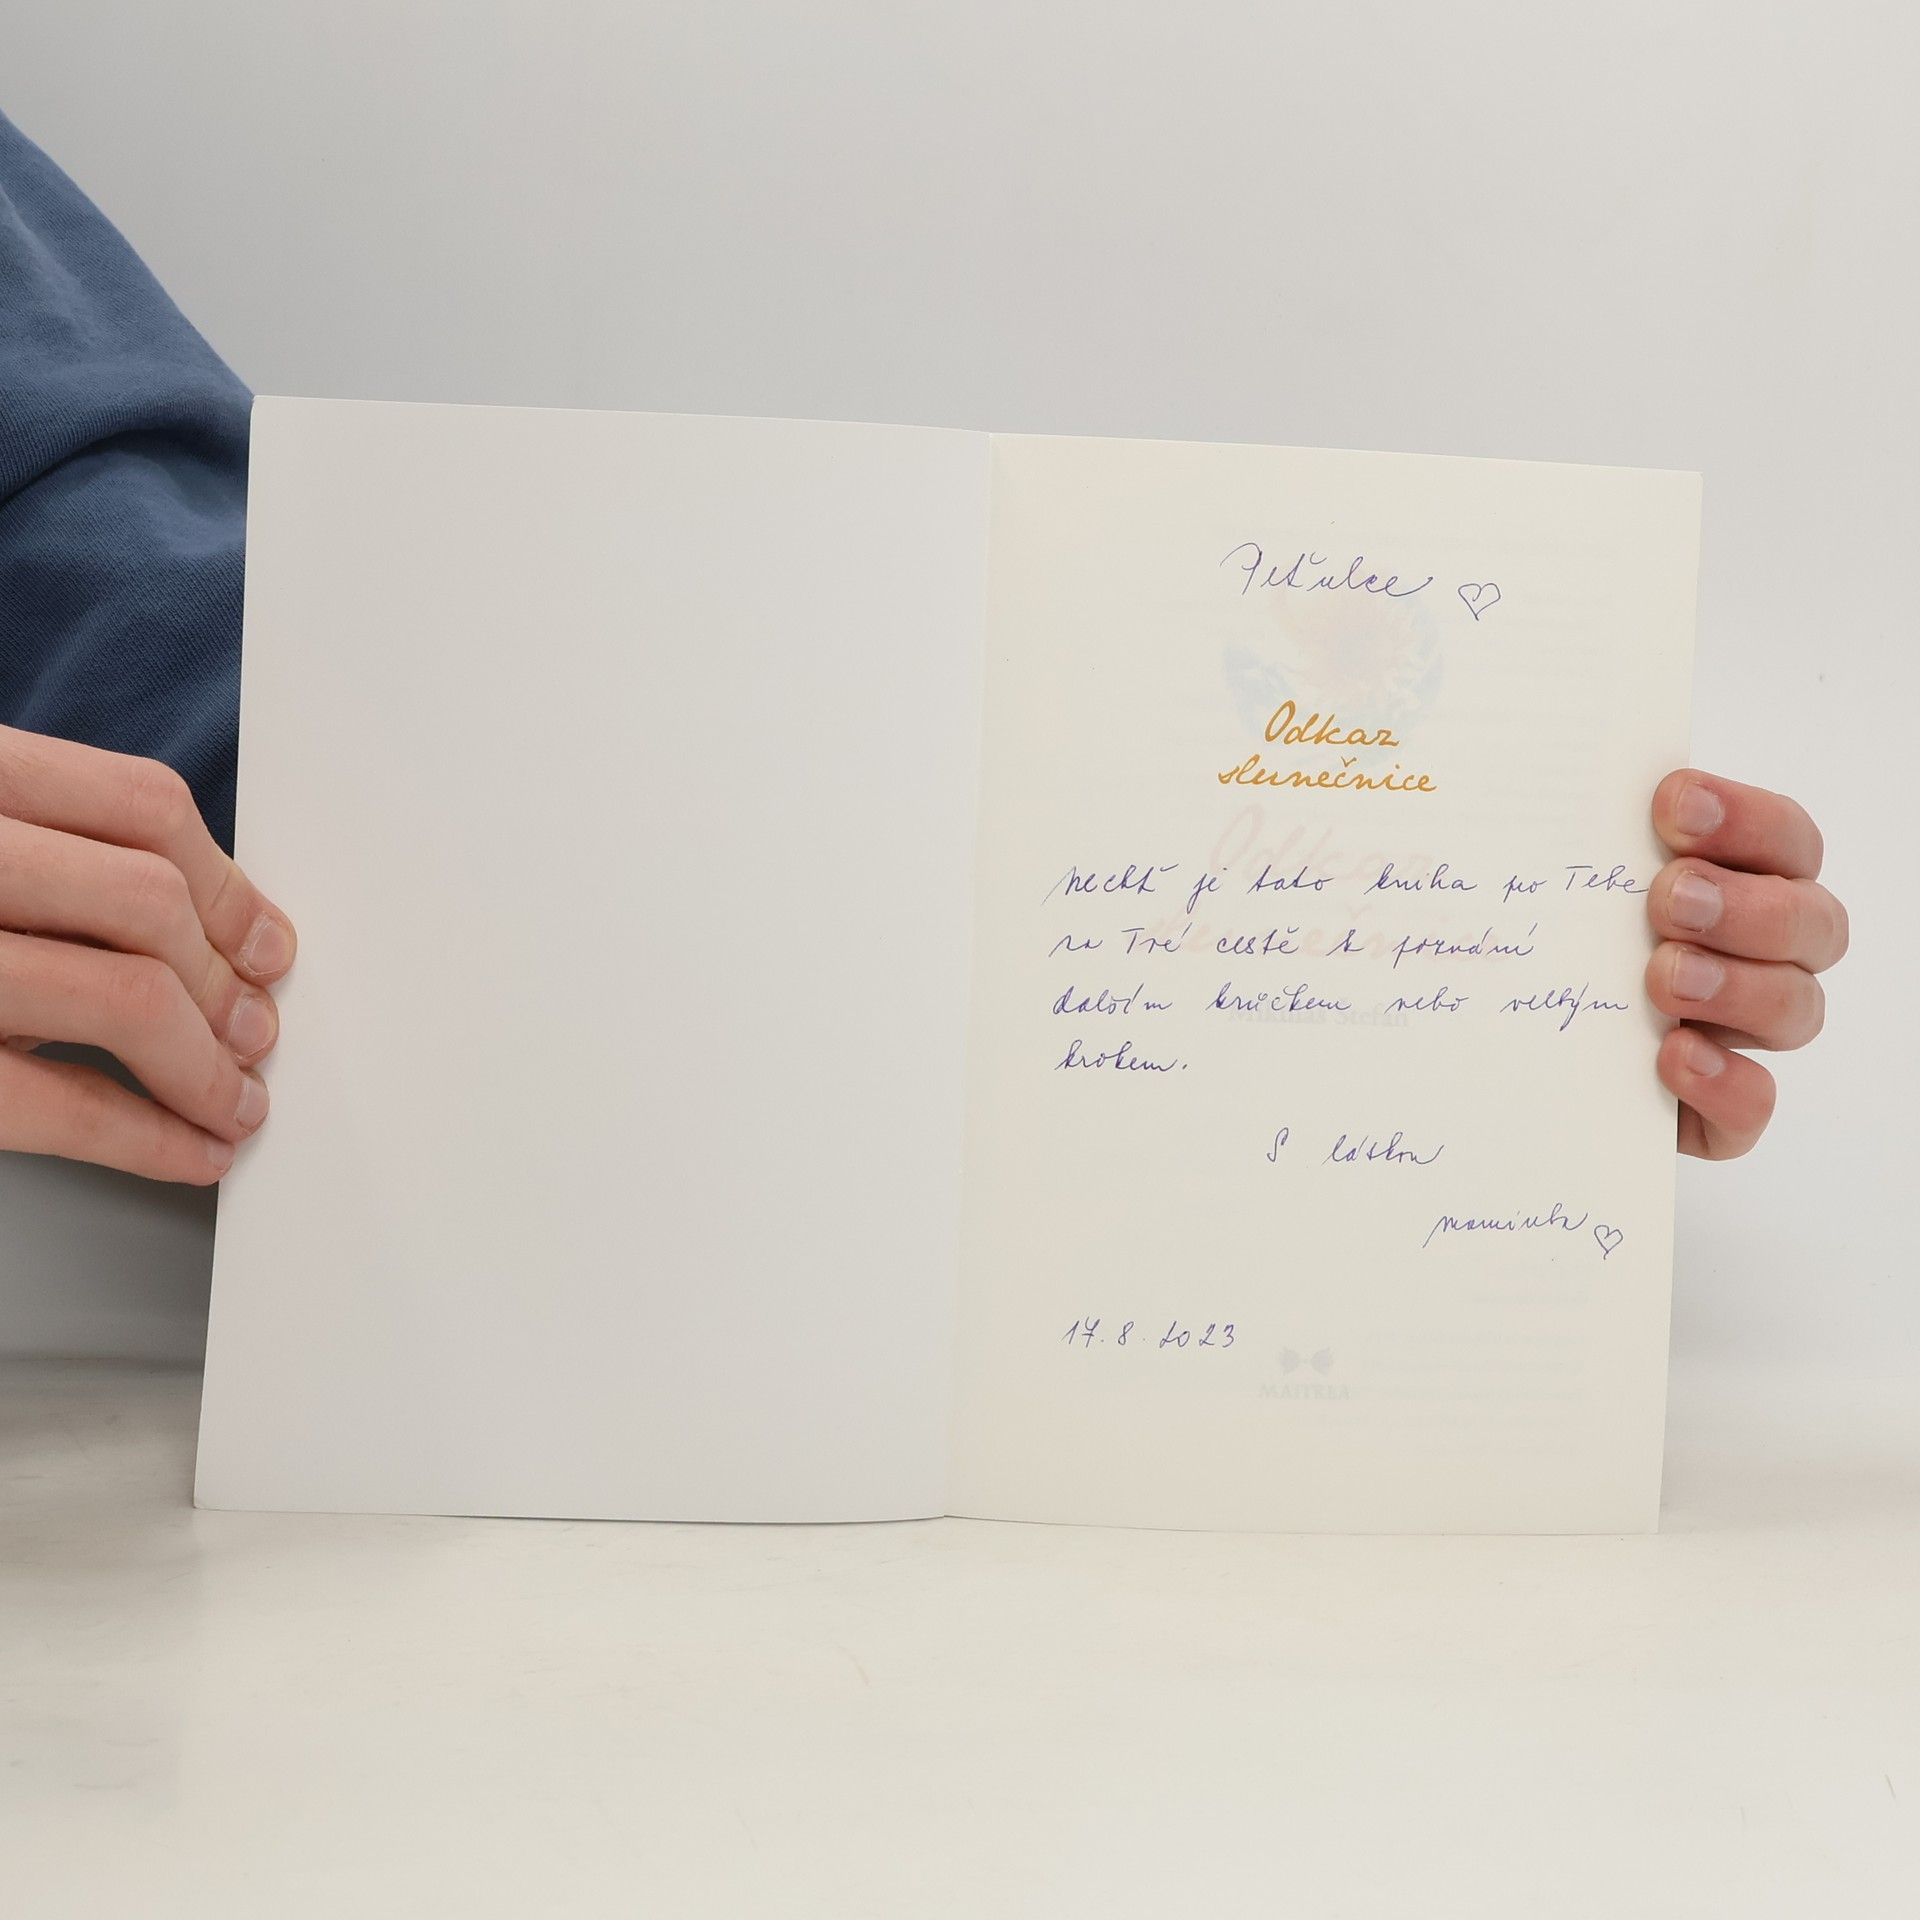 Peťulce ♡
Odkaz
slunečnice
nechť je tato kniha pro Tebe
na Tvé cestě k poznání
dalším krůčkem nebo velkým
krokem.
S láskou
maminka ♡
17. 8. 2023
MAITREA